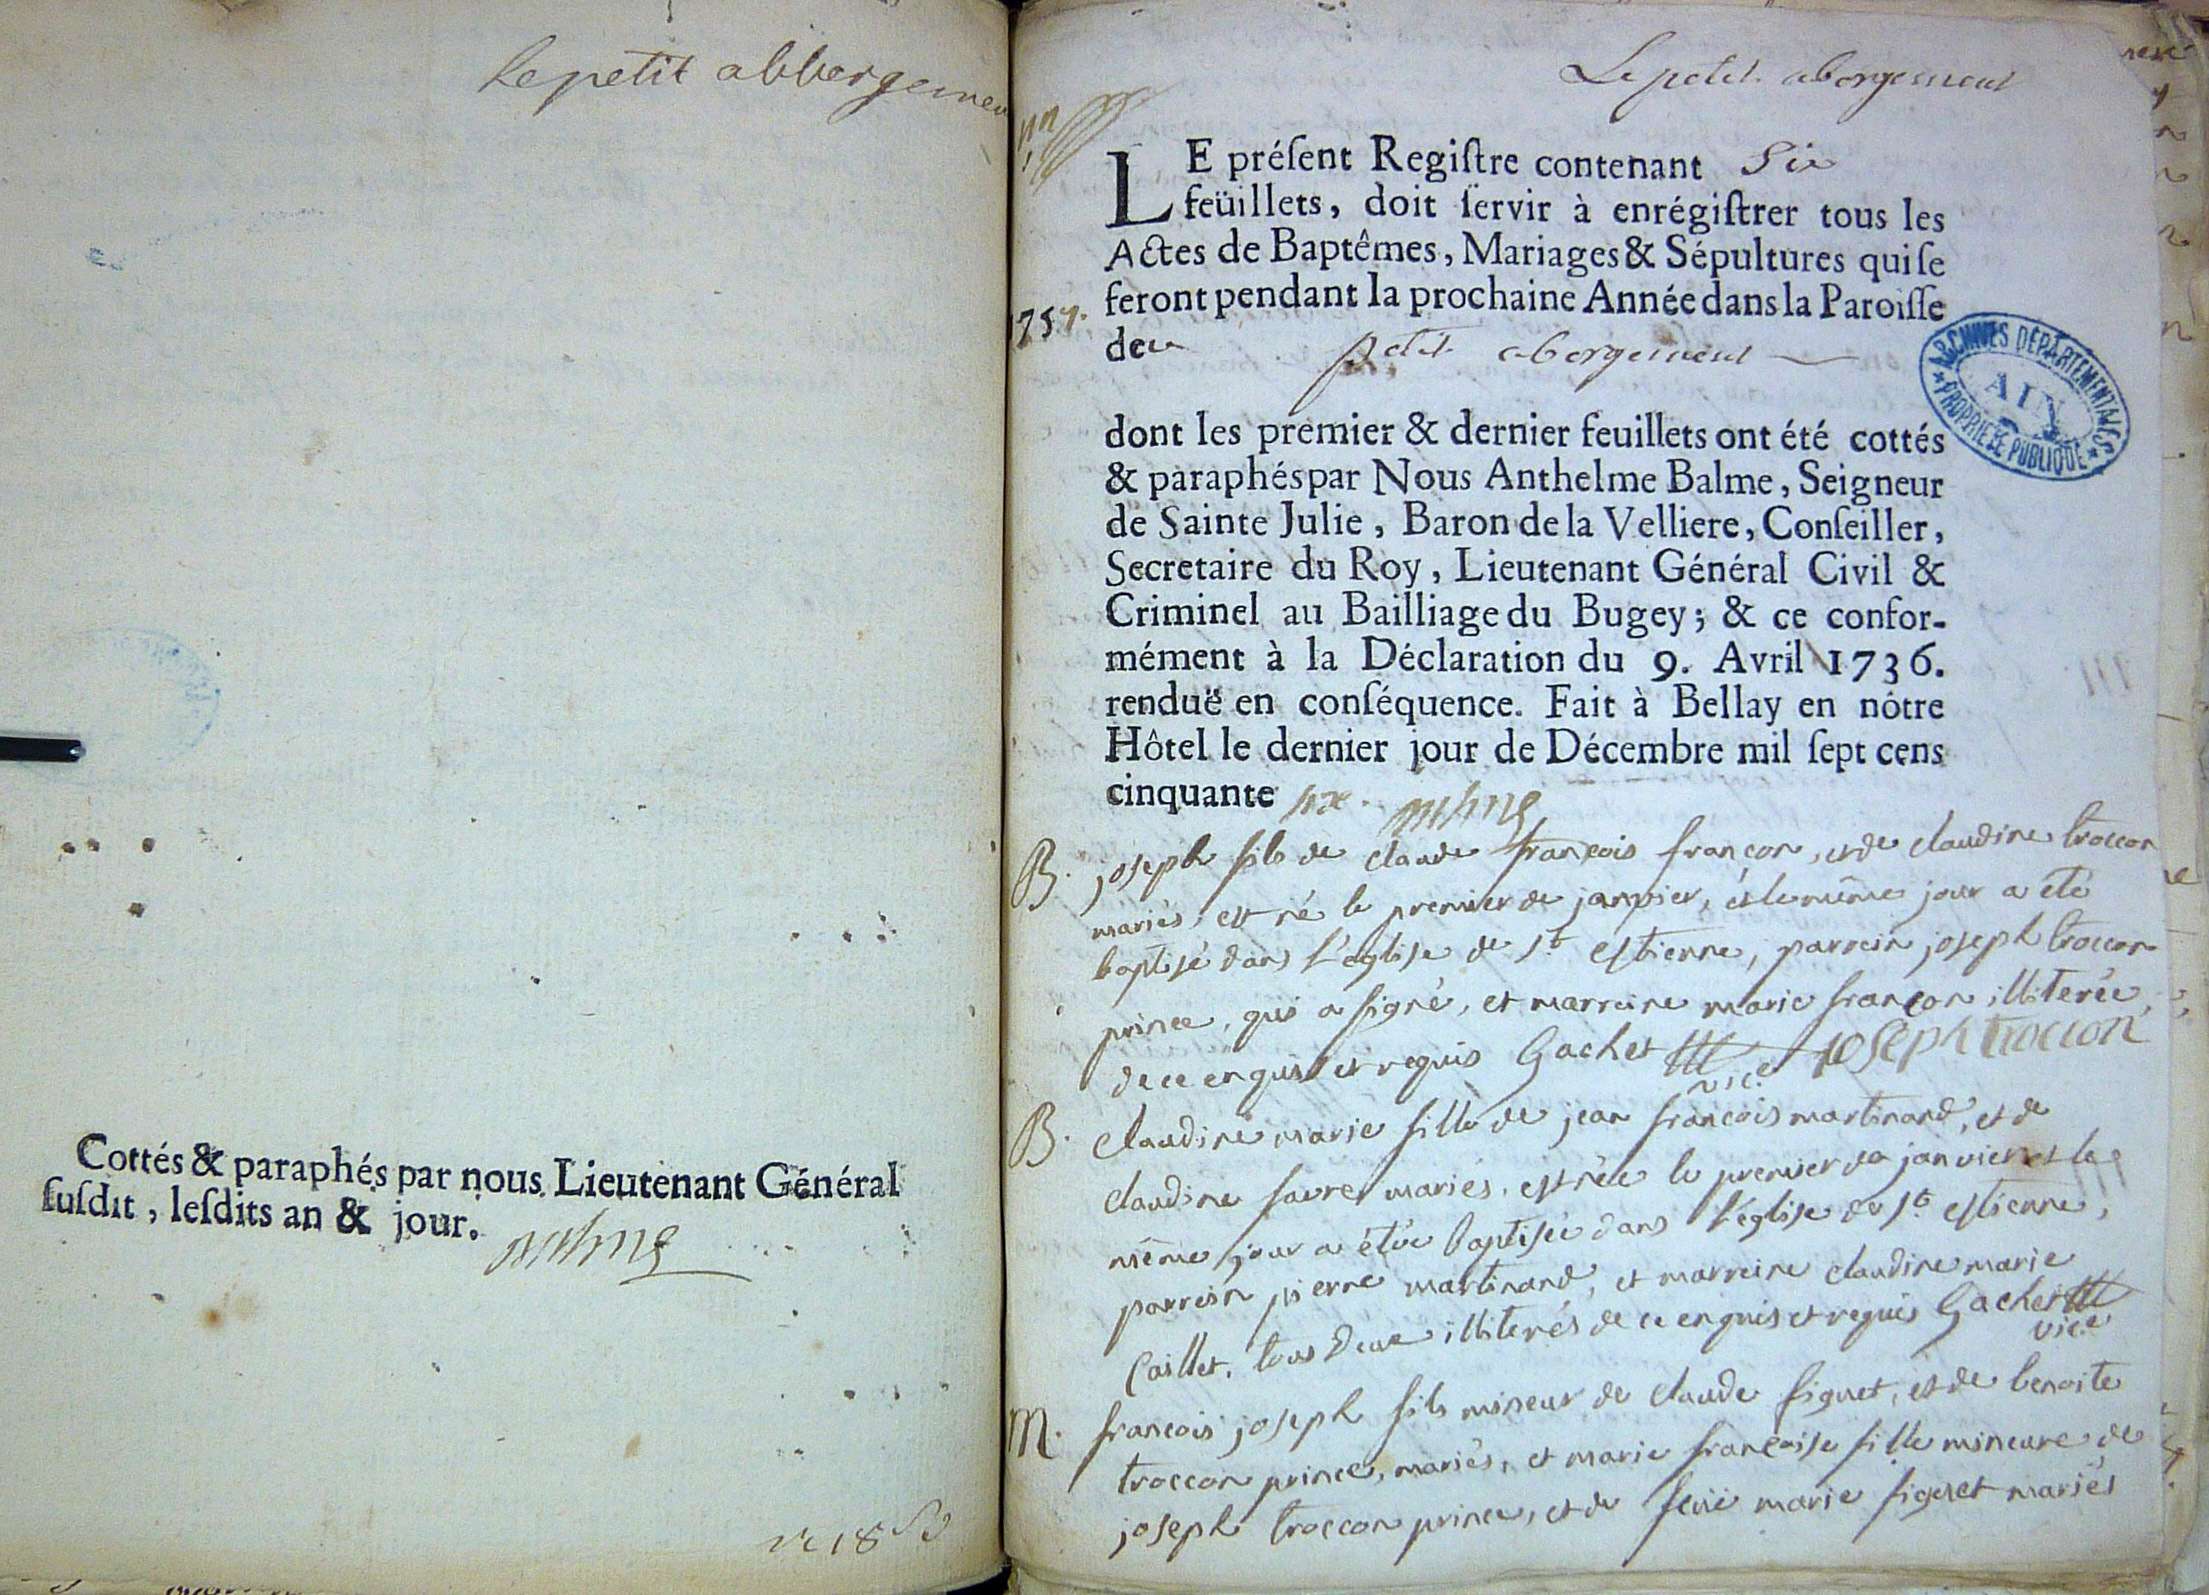 Le petit abbergemen
Cottés & paraphés par nous Lieutenant Général
ſuſdit, leſdits an & jour.
Le petit abergement
LE préſent Regiſtre contenant Six
feüillets, doit ſervir à enrégiſtrer tous les
Actes de Baptêmes, Mariages & Sépultures qui ſe
feront pendant la prochaine Année dans la Paroiſſe
1757.
de petit abergement
ARCHIVES DÉPARTEMENTALES
AIN
PROPRIÉTÉ PUBLIQUE
dont les premier & dernier feuillets ont été cottés
& paraphés par Nous Anthelme Balme, Seigneur
de Sainte Julie, Baron de la Velliere, Conſeiller,
Secretaire du Roy, Lieutenant Général Civil &
Criminel au Bailliage du Bugey; & ce confor-
mément à la Déclaration du 9. Avril 1736.
renduë en conſéquence. Fait à Bellay en nôtre
Hôtel le dernier jour de Décembre mil ſept cens
cinquante six.
B. joseph fils de claude françois françon, et de claudine troccon
mariés, est né le premier de janvier, et le même jour a été
baptisé dans l'église de st estienne, parrein joseph troccon
prince, qui a signé, et marreine marie françon illiterée,
de ce enquis et requis Gachet vic.e joseph troccon
B. Claudine marie fille de jean françois martinand, et de
Claudine favre mariés, est née le premier de janvier et le
même jour a étée baptisée dans l'église de st estienne,
parrein pierre martinand, et marreine claudine marie
Caillet, tous deux illiterés de ce enquis et requis Gachet vic.e
M. françois joseph fils mineur de claude figuet, et de benoite
troccon prince, mariés, et marie françoise fille mineure de
joseph troccon prince, et de feüe marie figuet mariés